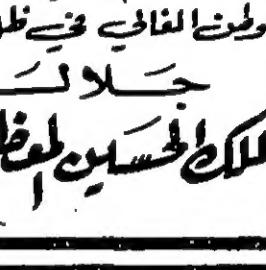 وطن الغالي في ظل
جلالة
الملك الحسين المعظ